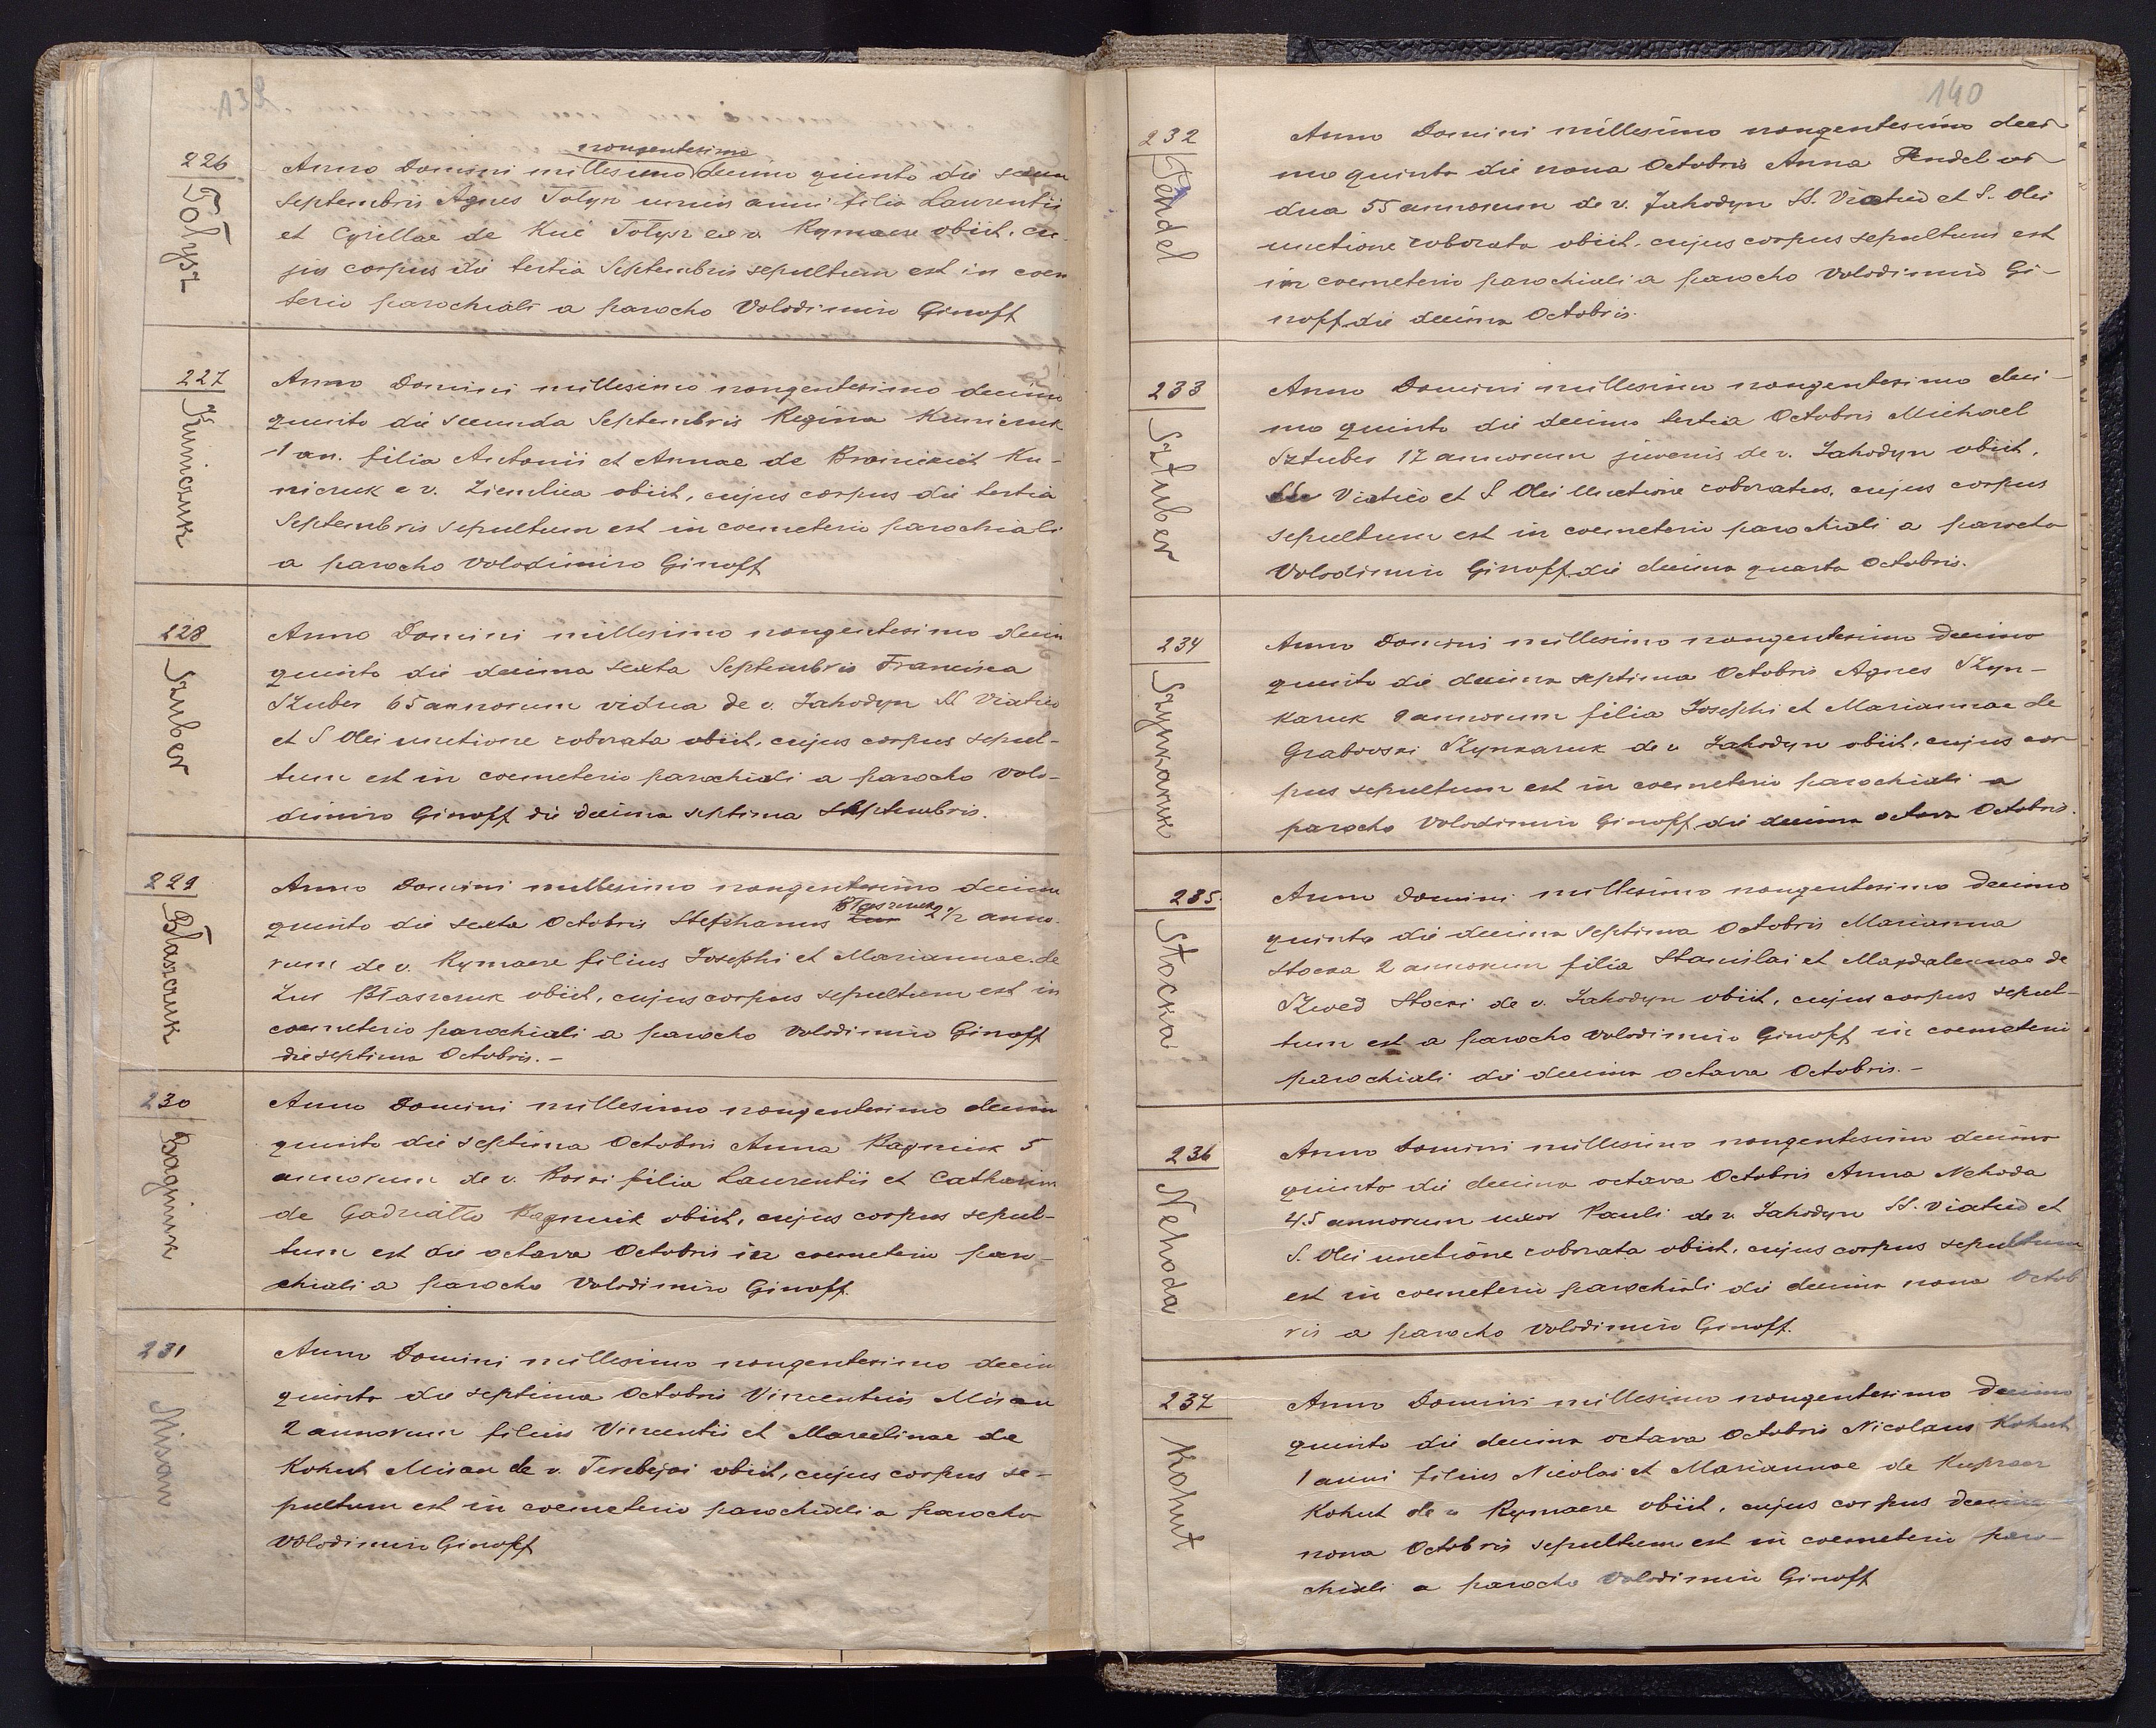 139
226
Tołysz
nongentesimo
Anno Domini millesimo decimo quinto die secun
Septembris Agnes Tołysz unius anni filia Laurentii
et Cyrillae de Kuć Tołysz ex v. Rymacze obiit, cu-
jus corpus die tertia Septembris sepultum est in coem
terio parochiali a parocho Volodimiro Ginoff
227
Kunicruk
Anno Domini millesimo nongentesimo decimo
quinto die secunda Septembris Regina Kunicruk
1 an. filia Antonii et Annae de Ku-
nicruk e v. Ziemlica obiit, cujus corpus die tertia
Septembris sepultum est in coemeterio parochiali
a parocho Volodimiro Ginoff
228
Szuber
Anno Domini millesimo nongentesimo decim
quinto die decima sexta Septembris Francisca
Szuber 65 annorum vidua de v. Jahodyn SS Viatico
et S Olei unctione roborata obiit, cujus corpus sepul-
tum est in coemeterio parochiali a parocho Volo-
dimiro Ginoff die decima septima Septembris.
229
Błaszczuk
Anno Domini millesimo nongentesimo decim
Błaszczuk
quinto die sexta Octobris Stephanus 2 1/2 anno-
rum de v. Rymacze filius Josephi et Mariannae de
Zuś Błaszczuk obiit, cujus corpus sepultum est in
coemeterio parochiali a parocho Volodimiro Ginoff
die septima Octobris. -
230
Bagniuk
Anno Domini millesimo nongentesimo decim
quinto die septima Octobris Anna Bagniuk 5
annorum de v. filia Laurentii et Catharin
de Bagniuk obiit, cujus corpus sepul-
tum est die octava Octobris in coemeterio paro-
chiali a parocho Volodimiro Ginoff.
231
Misan
Anno Domini millesimo nongentesimo decim
quinto die septima Octobris Vincentius Misan
2 annorum filius Vincentii et Marcelinae de
Kohut Misan de v. Terebejci obiit, cujus corpus se-
pultum est in coemeterio parochiali a parocho
Volodimiro Ginoff
140
232
Fendel
Anno Domini millesimo nongentesimo deci-
mo quinto die nona Octobris Anna Fendel vi-
dua 55 annorum de v. Jahodyn SS. Viatico et S. Olei
unctione roborata obiit, cujus corpus sepultum est
in coemeterio parochiali a parocho Volodimiro Gi-
noff die decima Octobris.
233
Sztuber
Anno Domini millesimo nongentesimo deci-
mo quinto die decima tertia Octobris Michael
Sztuber 17 annorum juvenis de v. Jahodyn obiit,
SS Viatico et S Olei Unctione roboratus, cujus corpus
sepultum est in coemeterio parochiali a parocho
Volodimiro Ginoff die decima quarta Octobris.
234
Szynkaruk
Anno Domini millesimo nongentesimo decimo
quinto die decima septima Octobris Agnes Szyn-
karuk 9 annorum filia Josephi et Mariannae de
Grabovski Szynkaruk de v. Jahodyn obiit, cujus cor-
pus sepultum est in coemeterio parochiali a
parocho Volodimiro Ginoff die decima octava Octobris.
235.
Stocka
Anno Domini millesimo nongentesimo decimo
quinto die decima septima Octobris Marianna
Stocka 2 annorum filia Stanislai et Magdalennae de
Szwed Stocki de v. Jahodyn obiit, cujus corpus sepul-
tum est a parocho Volodimiro Ginoff in coemeterio
parochiali die decima octava Octobris. -
236
Nehoda
Anno Domini millesimo nongentesimo decimo
quinto die decima octava Octobris Anna Nehoda
45 annorum uxor Pauli de v. Jahodyn SS. Viatico et
S. Olei unctione roborata obiit, cujus corpus sepultum
est in coemeterio parochiali die decima nona Octob
ris a parocho Volodimiro Ginoff.
237
Kohut
Anno Domini millesimo nongentesimo decimo
quinto die decima octava Octobris Nicolaus Kohut
1 anni filius Nicolai et Mariannae de
Kohut de v Rymacze obiit, cujus corpus decima
nona Octobris sepultum est in coemeterio paro-
chiali a parocho Volodimiro Ginoff